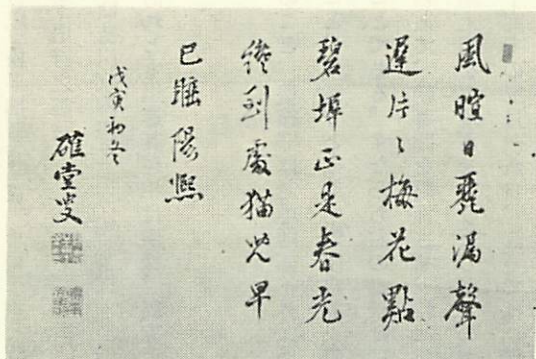 風暄日麗漏聲
遲片々梅花點
碧墀正是春光
纔到處猫兒早
已睡陽熙
戊寅初冬
碓堂叟